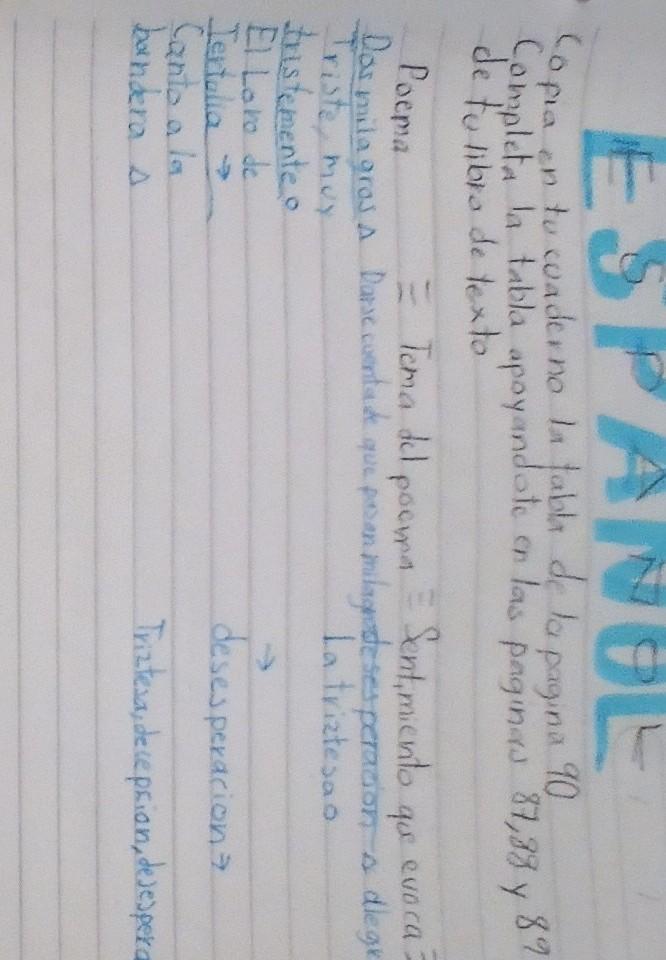 ESPAÑOL
Copia en tu cuaderno la tabla de la pagina 90
Completa la tabla apoyandote en las paginas 87,88 y 89
de tu libro de texto
Poema = Tema del poema = Sentimiento que evoca =
Dos milagros Δ Darse cuenta de que pasan milagros desesperacion Δ alegr
Triste, muy La triztesa o
tristemente o
El Loro de →
Tertulia → desesperacion →
Canto a la Triztesa, decepsion, desespera
bandera Δ